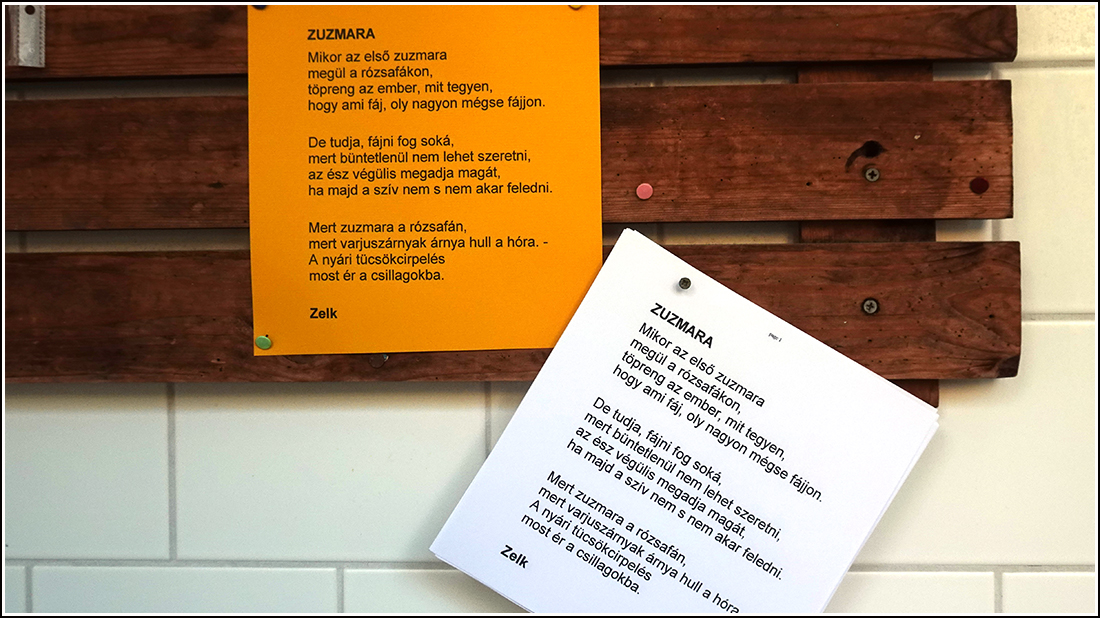 ZUZMARA
Mikor az első zuzmara
megül a rózsafákon,
töpreng az ember, mit tegyen,
hogy ami fáj, oly nagyon mégse fájjon.
De tudja, fájni fog soká,
mert büntetlenül nem lehet szeretni,
az ész végülis megadja magát,
ha majd a szív nem s nem akar feledni.
Mert zuzmara a rózsafán,
mert varjuszárnyak árnya hull a hóra. -
A nyári tücsökcirpelés
most ér a csillagokba.
Zelk
ZUZMARA
Mikor az első zuzmara
megül a rózsafákon,
töpreng az ember, mit tegyen,
hogy ami fáj, oly nagyon mégse fájjon.
De tudja, fájni fog soká,
mert büntetlenül nem lehet szeretni,
az ész végülis megadja magát,
ha majd a szív nem s nem akar feledni.
Mert zuzmara a rózsafán,
mert varjuszárnyak árnya hull a hóra
A nyári tücsökcirpelés
most ér a csillagokba.
Zelk